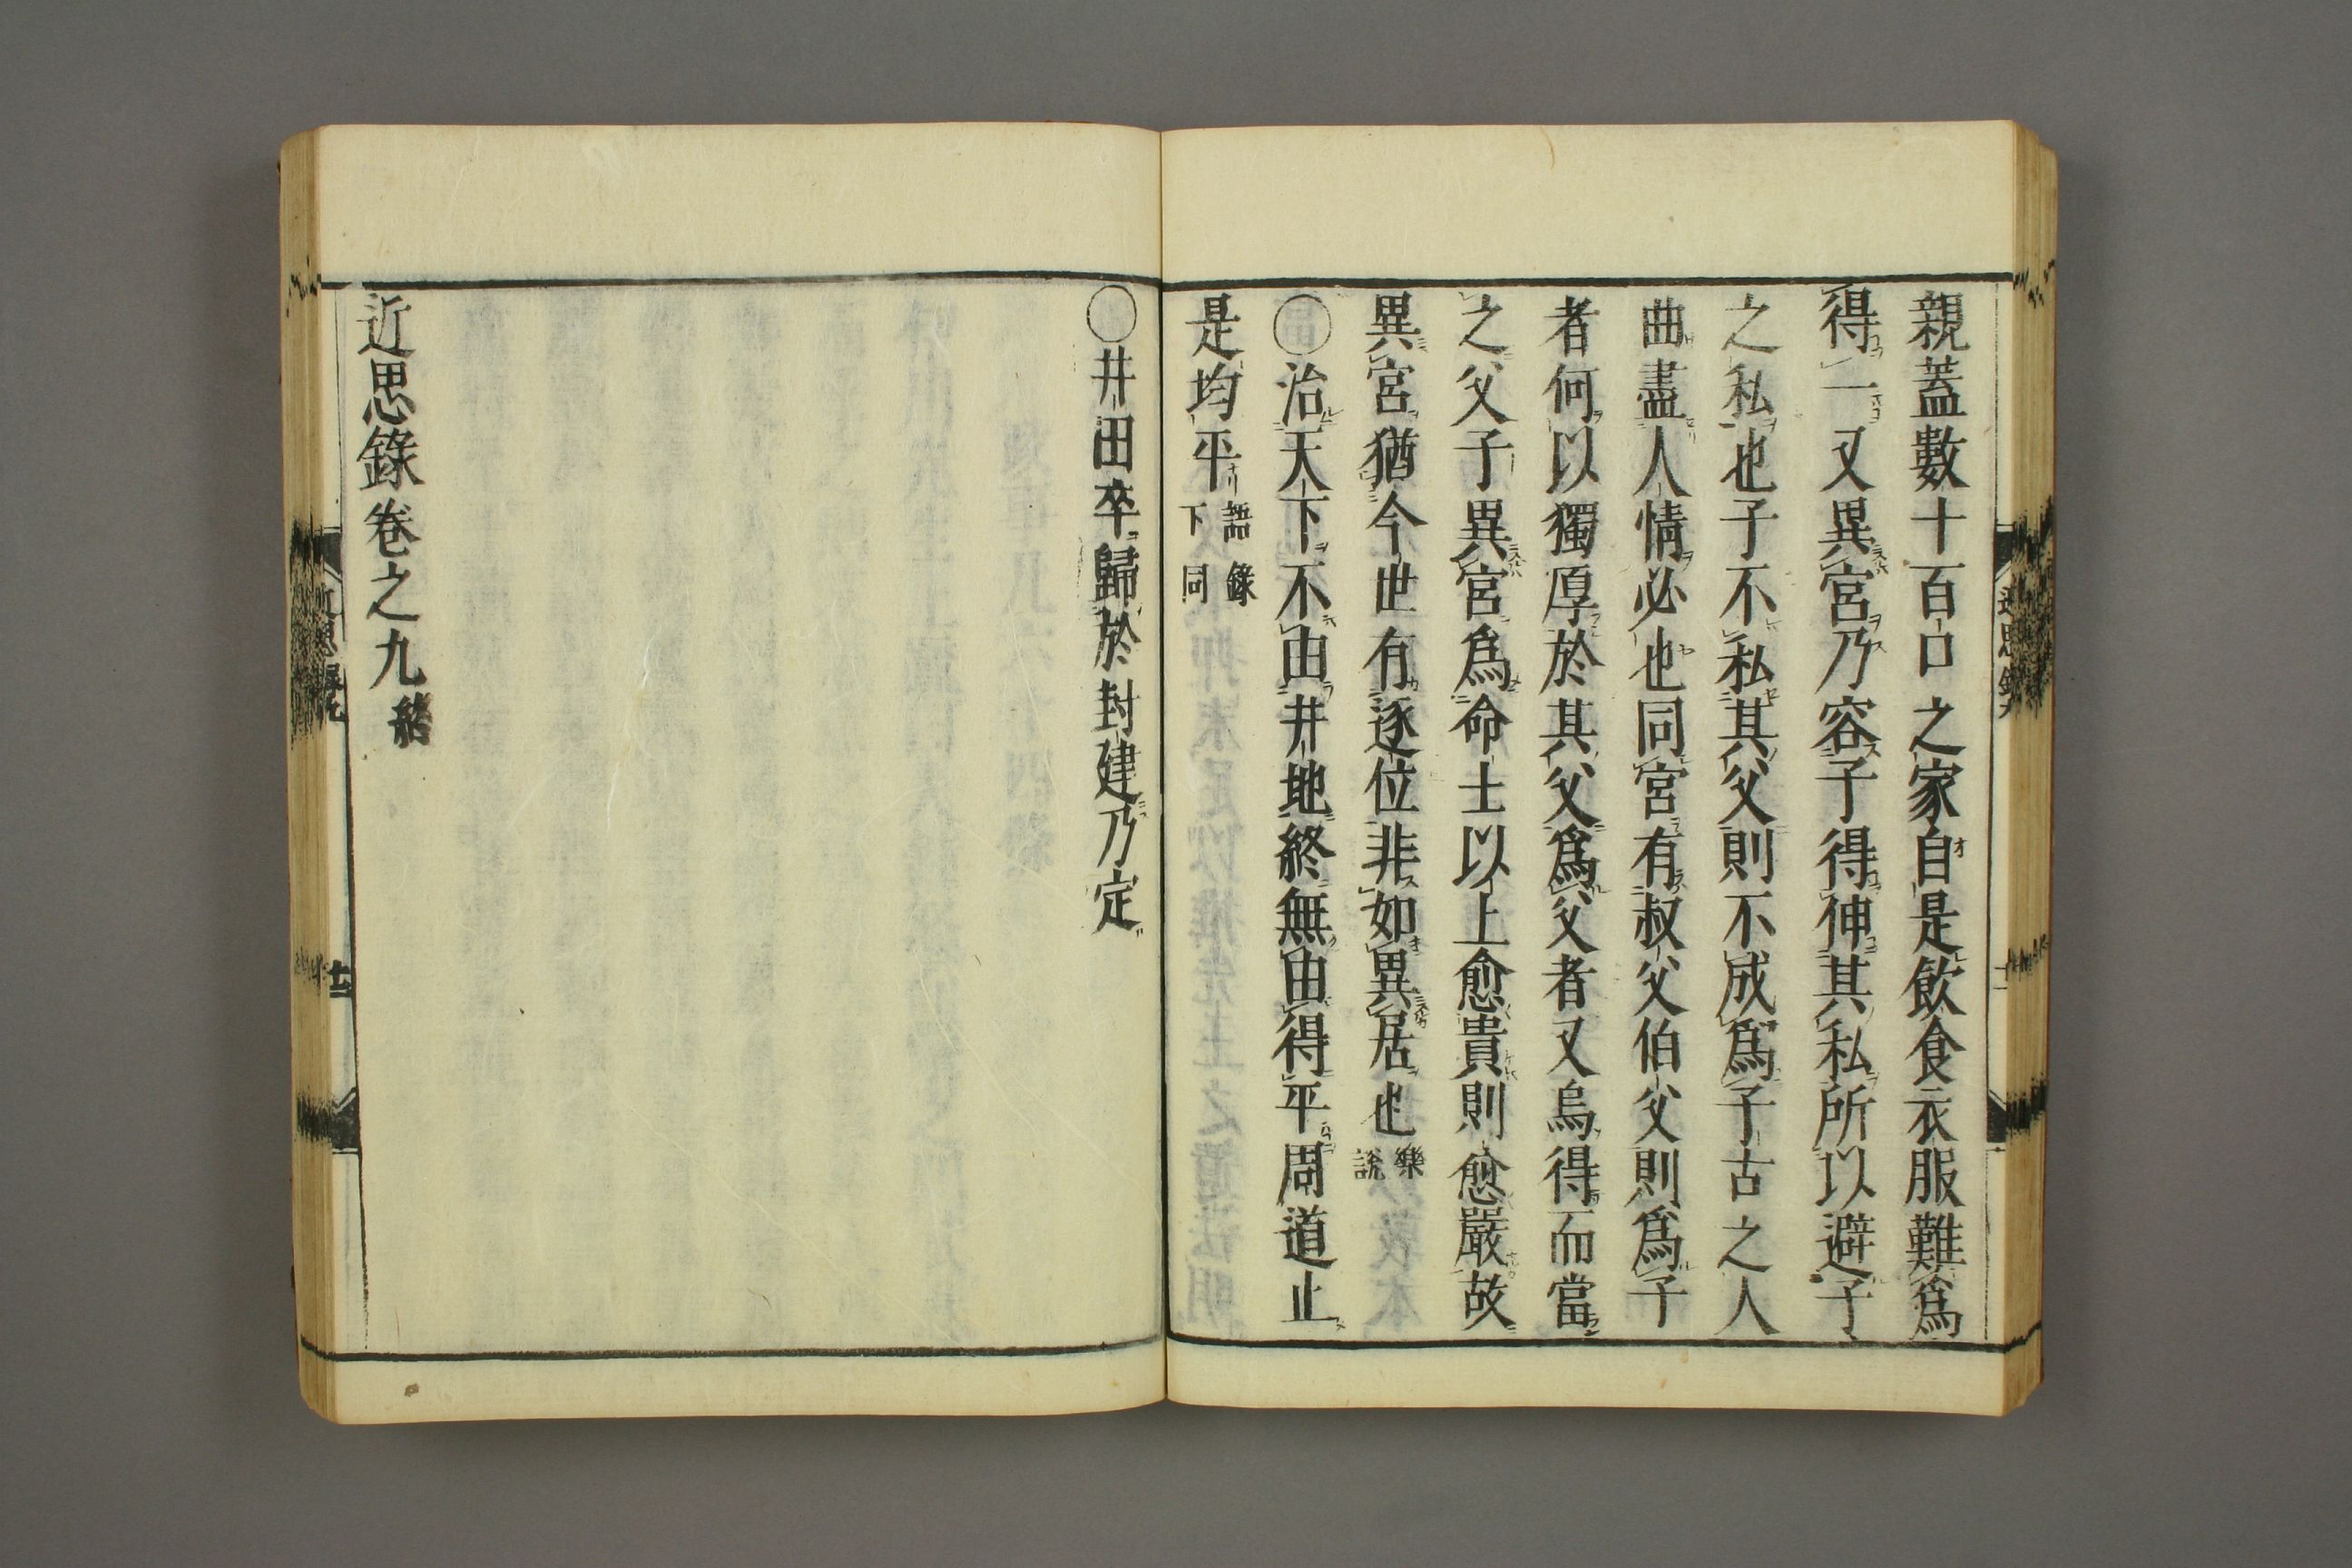 親蓋數十百口之家自是飲食衣服難爲
得一又異宮乃容子得伸其私所以避子
之私也子不私其父則不成爲子古之人
曲盡人情必也同宮有叔父伯父則爲子
者何以獨厚於其父爲父者又烏得而當
之父子異宮爲命士以上愈貴則愈嚴故
異宮猶今世有逐位非如異居也樂説
○治天下不由井地終無由得平周道止
是均平語錄下同
○井田卒歸於封建乃定
近思錄卷之九終